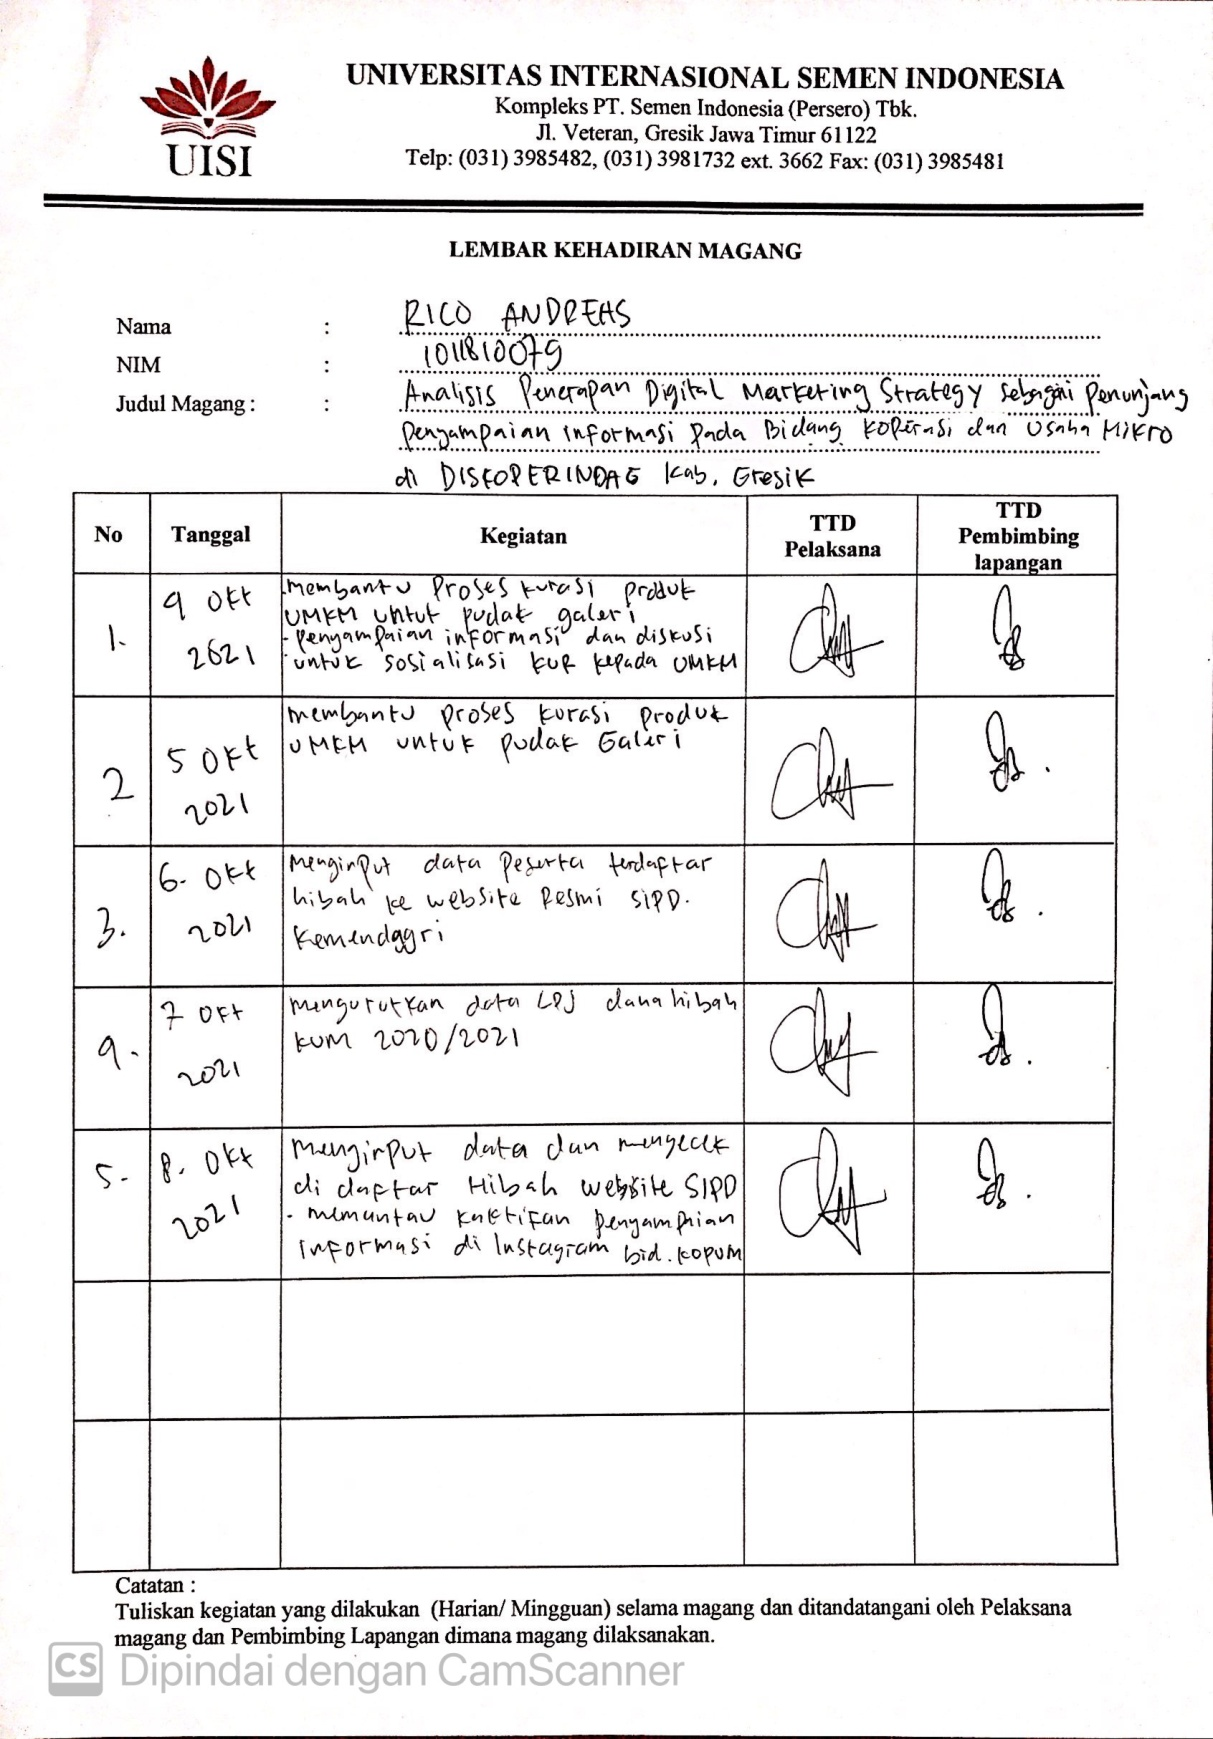 UISI
UNIVERSITAS INTERNASIONAL SEMEN INDONESIA
Kompleks PT. Semen Indonesia (Persero) Tbk.
Jl. Veteran, Gresik Jawa Timur 61122
Telp: (031) 3985482, (031) 3981732 ext. 3662 Fax: (031) 3985481
LEMBAR KEHADIRAN MAGANG
Nama : RICO ANDREAS
NIM : 1011810079
Judul Magang : : Analisis Penerapan Digital Marketing Strategy sebagai Penunjang
penyampaian informasi pada Bidang koperasi dan Usaha Mikro
di DISKOPERINDAG Kab. Gresik
No Tanggal Kegiatan TTD Pelaksana TTD Pembimbing lapangan
1. 4 Okt 2021
membantu Proses kurasi produk
UMKM untuk pudak galeri
- penyampaian informasi dan diskusi
untuk sosialisasi KUR kepada UMKM
2 5 Okt 2021
membantu proses kurasi produk
UMKM untuk pudak Galeri
3. 6. Okt 2021
Menginput data peserta terdaftar
hibah ke website Resmi SIPD.
Kemendagri
4. 7 Okt 2021
mengurutkan data LPJ dana hibah
KUM 2020/2021
5. 8. Okt 2021
Menginput data dan mengecek
di daftar Hibah website SIPD
- memantau keaktifan penyampaian
informasi di Instagram bid. kopum
Catatan :
Tuliskan kegiatan yang dilakukan (Harian/ Mingguan) selama magang dan ditandatangani oleh Pelaksana
magang dan Pembimbing Lapangan dimana magang dilaksanakan.
CS Dipindai dengan CamScanner